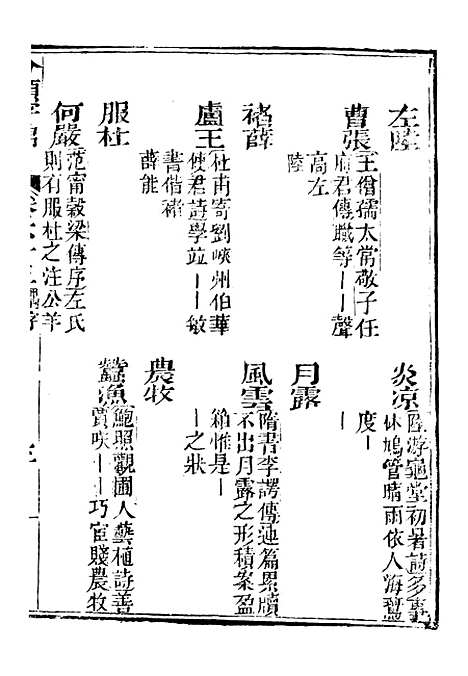 左陸
曹張 王僧孺太常敬子任
府君傳職等丨丨聲
高左
陸
褚薛
盧王 杜甫寄劉峽州伯華
使君詩學竝丨丨敏
書偕褚
薛能
服杜
何嚴 范甯穀梁傳序左氏
則有服杜之注公羊
炎凉 陸游龜堂初暑詩多事
林鳩管晴雨依人海鷰
度丨丨
月露
風雲 隋書李諤傳連篇累牘
不出月露之形積案盈
箱惟是丨
丨之狀
農牧
蠶漁 鮑照觀圃人藝植詩善
賈咲丨丨巧宦賤農牧